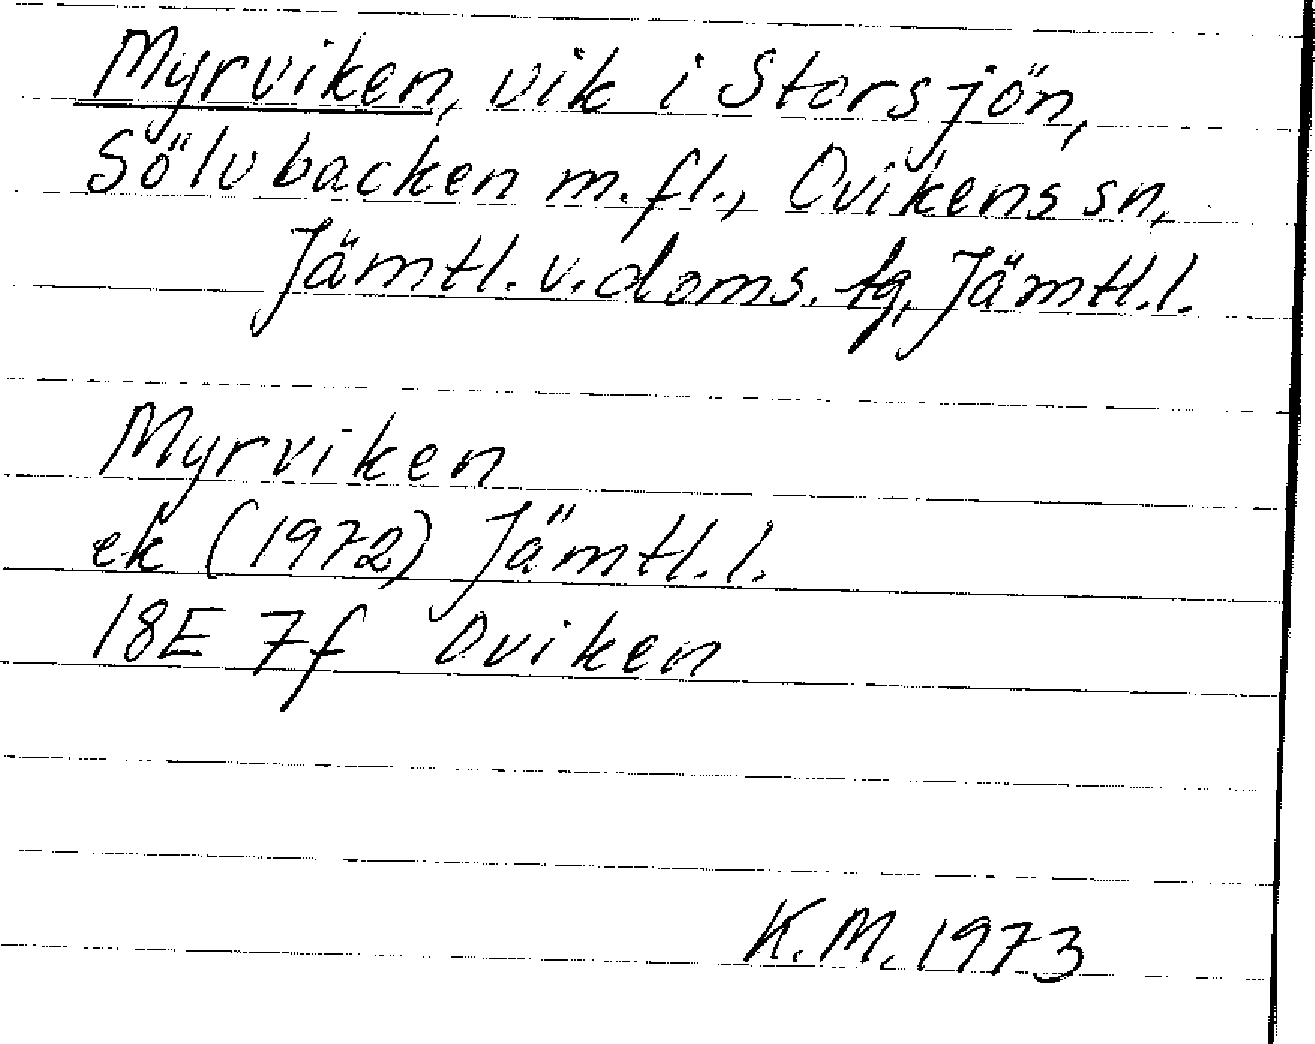 Myrviken, vik i Storsjön,
Sölvbacken m.fl., Ovikens sn,
Jämtl. v. doms. tg, Jämtl.l.
Myrviken
ek (1972) Jämtl.l.
18E 7f Oviken
K.M. 1973